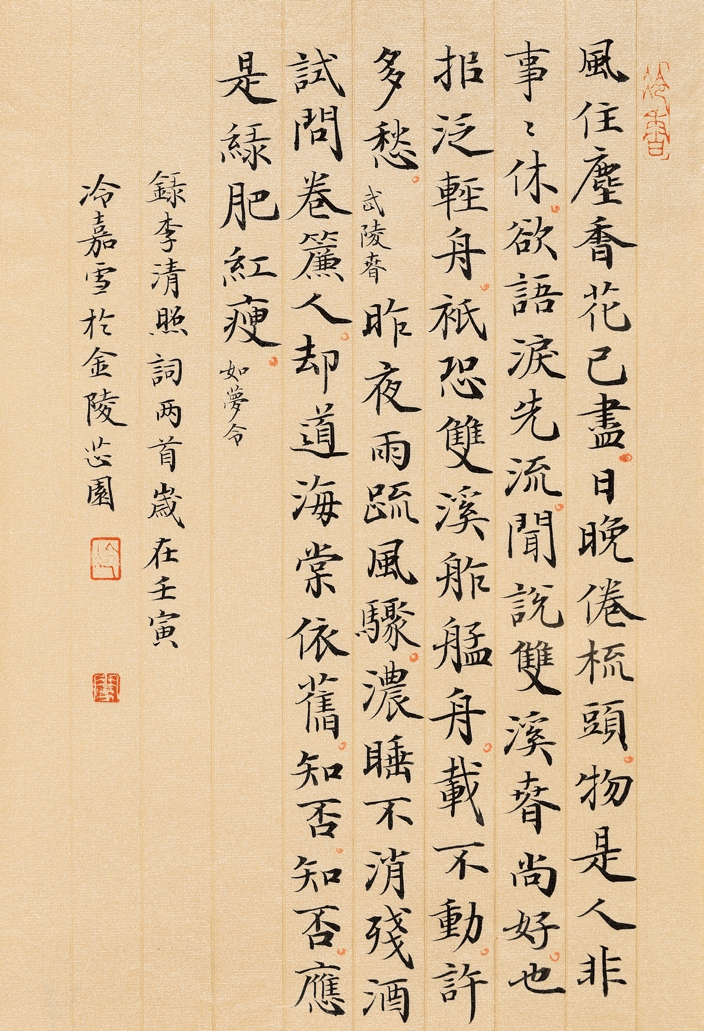 風住塵香花已盡日晚倦梳頭物是人非
事〻休欲語淚先流聞説雙溪春尚好也
拟泛輕舟衹恐雙溪舴艋舟載不動許
多愁 武陵春 昨夜雨疏風驟濃睡不消殘酒
試問卷簾人却道海棠依舊知否知否應
是緑肥紅瘦 如夢令
録李清照詞两首歲在壬寅
冷嘉雪於金陵芯園